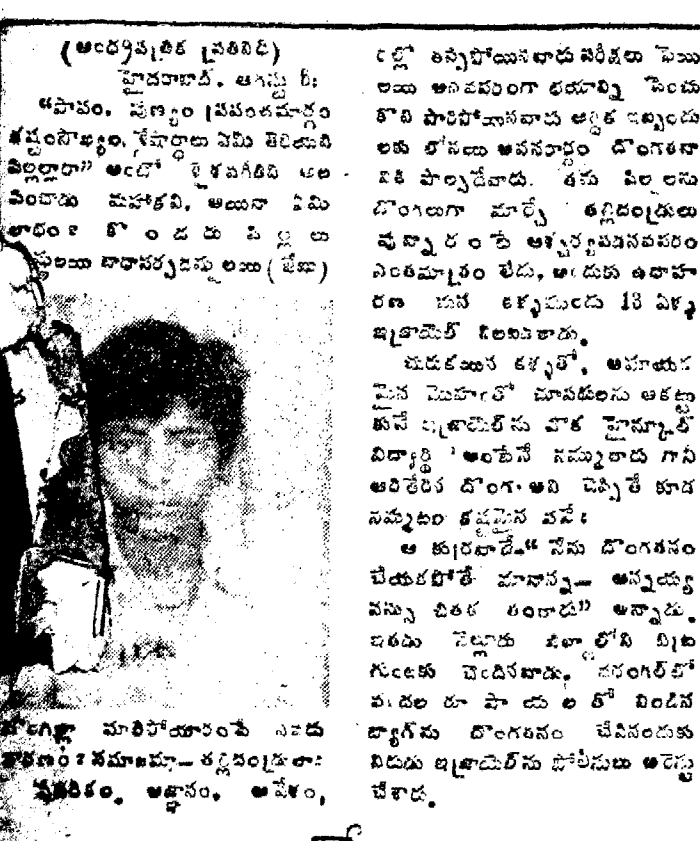 (ఆంధ్రపత్రిక ప్రతినిధి)
హైదరాబాద్, ఆగస్టు
“పాపం, పుణ్యం ప్రపంచమార్గం
కష్టంసౌఖ్యం, శ్లేషార్థాలు ఏమీ తెలియని
పిల్లల్లారా” అంటో శైశవగీతిని ఆల
పించాడు మహాకవి, అయినా ఏమి
లాభం? కొందరు పిల్లలు
దొంగల్లా మారిపోయారంటే ఎవరు
కారణం? సమాజమా— తల్లిదండ్రులా?
అజ్ఞానం, ఆవేశం,
తప్పిపోయినవాడు పరీక్షలు ఫెయి
లయి అనవసరంగా భయాన్ని పెంచు
కొని పారిపోయినవాడు ఆర్థిక ఇబ్బందు
లకు లోనయి అవసరార్థం దొంగతనా
నికి పాల్పడేవాడు. తమ పిల్లలను
దొంగలుగా మార్చే తల్లిదండ్రులు
వున్నారంటే ఆశ్చర్యపడినవసరం
ఎంతమాత్రం లేదు, అందుకు ఉదాహ
రణ మన కళ్ళముందు 13 ఏళ్ళ
ఇజ్రాయెల్ నిలబడతాడు.
చురుకయిన కళ్ళతో, అమాయక
మైన మొహంతో చూపరులను ఆకట్టు
కునే ఇజ్రాయెల్‌ను వొక హైస్కూల్
విద్యార్థి అంటేనే నమ్ముతారు గానీ
ఆరితేరిన దొంగ అని చెప్పితే కూడ
నమ్మటం కష్టమైన పనే!
ఆ కుర్రవాడే “నేను దొంగతనం
చేయకపోతే మానాన్న— అన్నయ్య
నన్ను చితక తంతారు” అన్నాడు.
ఇతడు నెల్లూరు జిల్లాలోని బిట్ర
గుంటకు చెందినవాడు, వరంగల్‌లో
వందల రూపాయలతో నిండిన
బ్యాగ్‌ను దొంగతనం చేసినందుకు
ఇజ్రాయెల్‌ను పోలీసులు అరెస్టు
చేశారు.